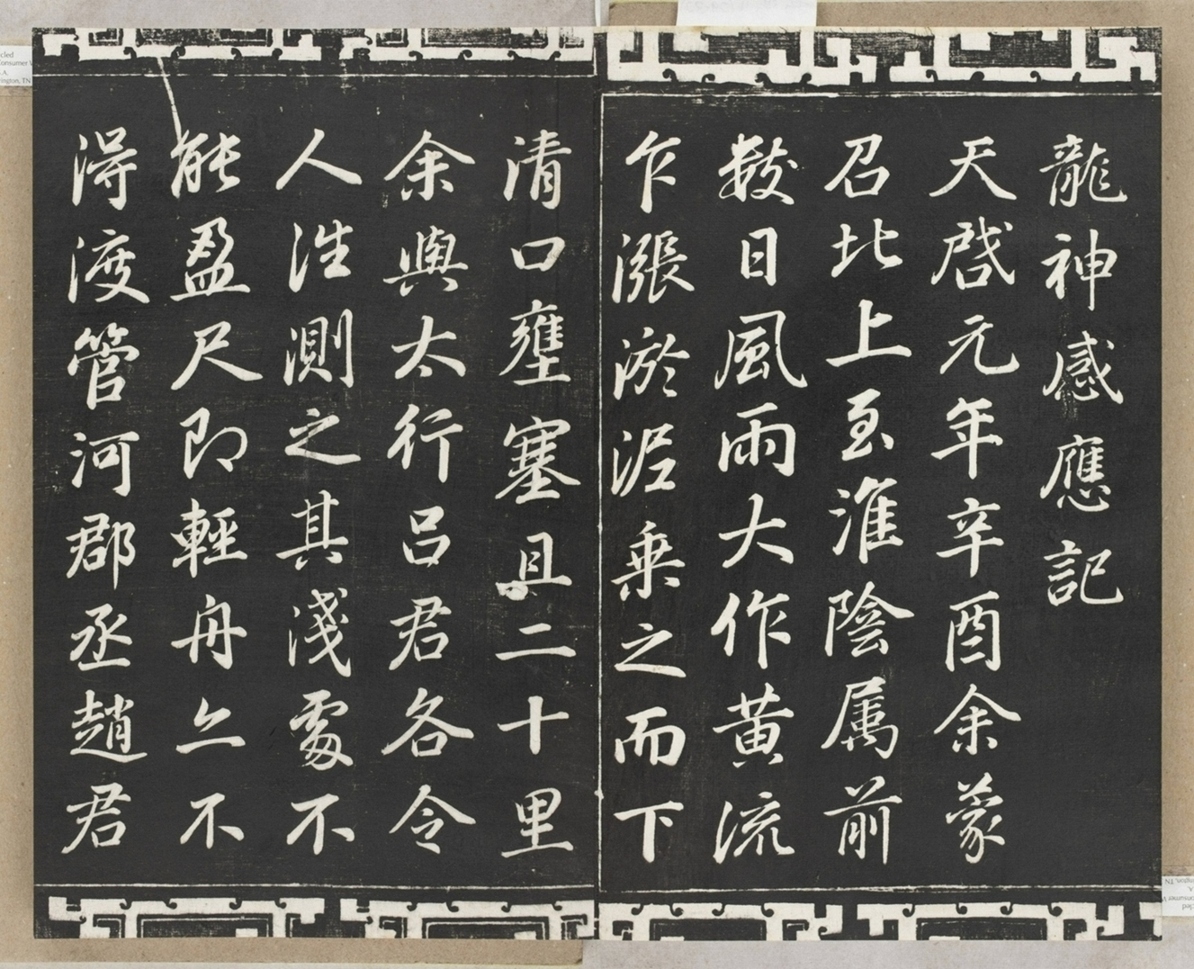 龍神感應記
天啓元年辛酉余蒙
召北上至淮陰属前
數日風雨大作黄流
乍漲淤泥乗之而下
清口壅塞且二十里
余與太行呂君各令
人往測之其淺處不
能盈尺即輕舟亦不
得渡管河郡丞趙君